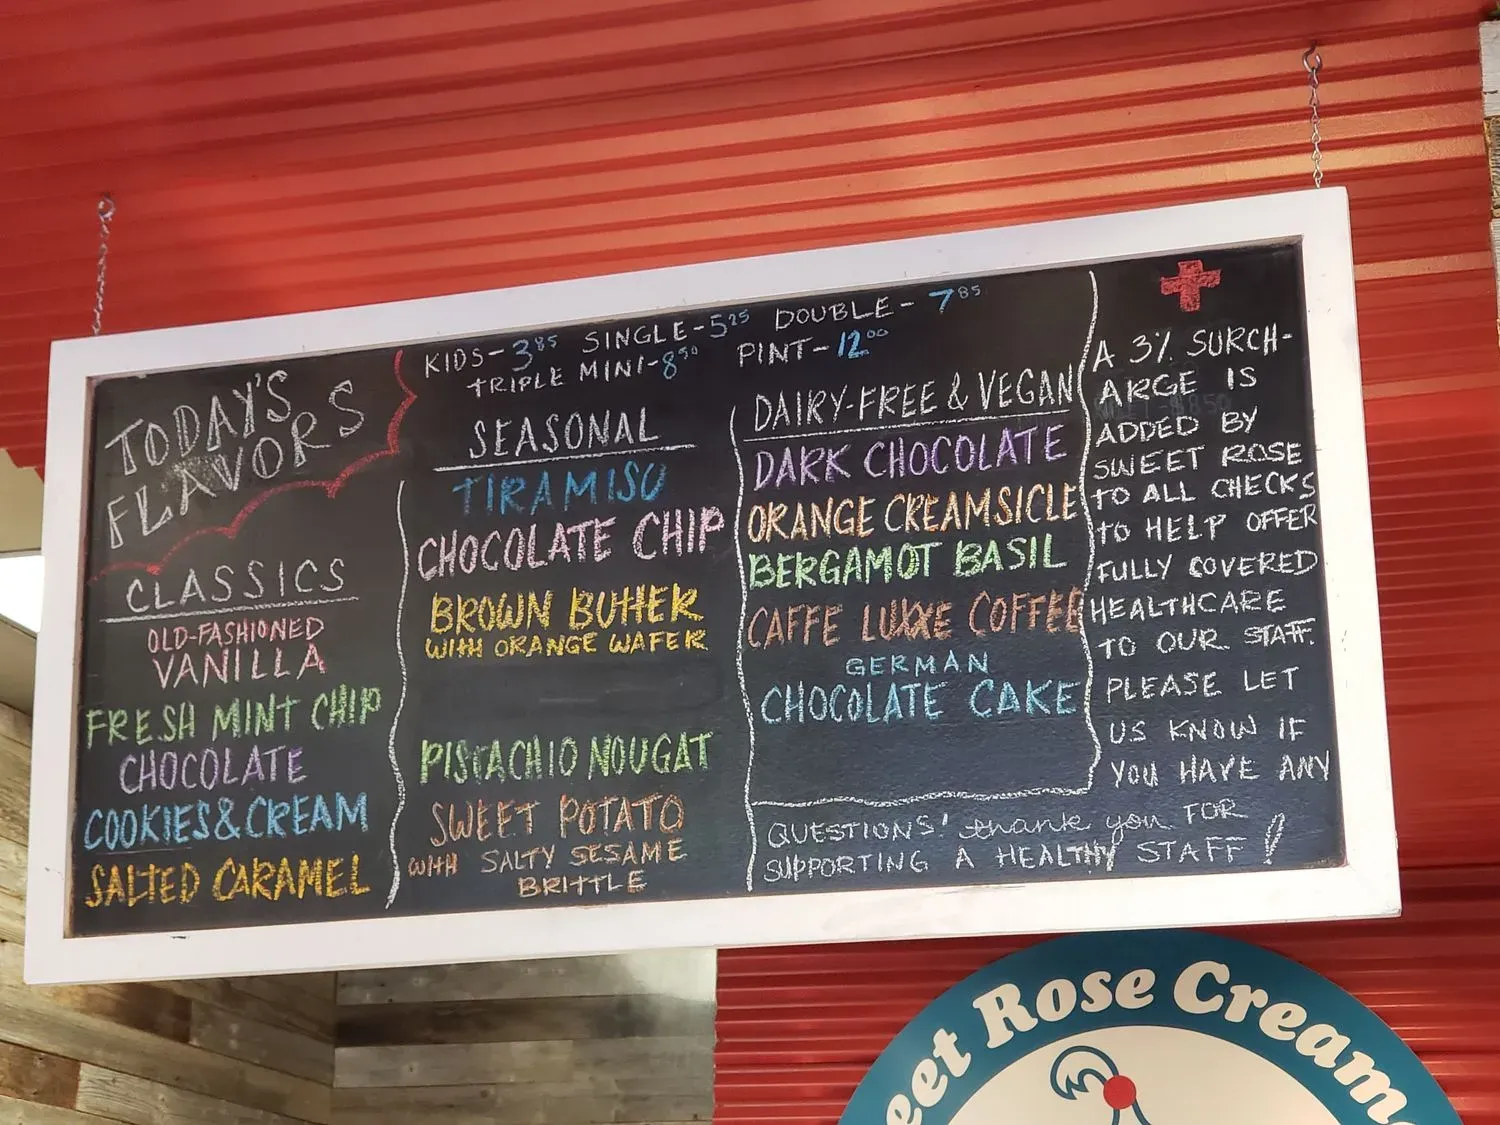 TODAY'S
FLAVORS
KIDS-3.85 SINGLE-5.25 DOUBLE-7.85
TRIPLE MINI-8.50 PINT-12.00
CLASSICS
OLD-FASHIONED
VANILLA
FRESH MINT CHIP
CHOCOLATE
COOKIES&CREAM
SALTED CARAMEL
SEASONAL
TIRAMISU
CHOCOLATE CHIP
BROWN BUTTER
WITH ORANGE WAFER
PISTACHIO NOUGAT
SWEET POTATO
WITH SALTY SESAME
BRITTLE
DAIRY-FREE & VEGAN
DARK CHOCOLATE
ORANGE CREAMSICLE
BERGAMOT BASIL
CAFFE LUXXE COFFEE
GERMAN
CHOCOLATE CAKE
A 3% SURCH-
ARGE IS
ADDED BY
SWEET ROSE
TO ALL CHECKS
TO HELP OFFER
FULLY COVERED
HEALTHCARE
TO OUR STAFF.
PLEASE LET
US KNOW IF
YOU HAVE ANY
QUESTIONS! thank you FOR
SUPPORTING A HEALTHY STAFF!
eet Rose Cream